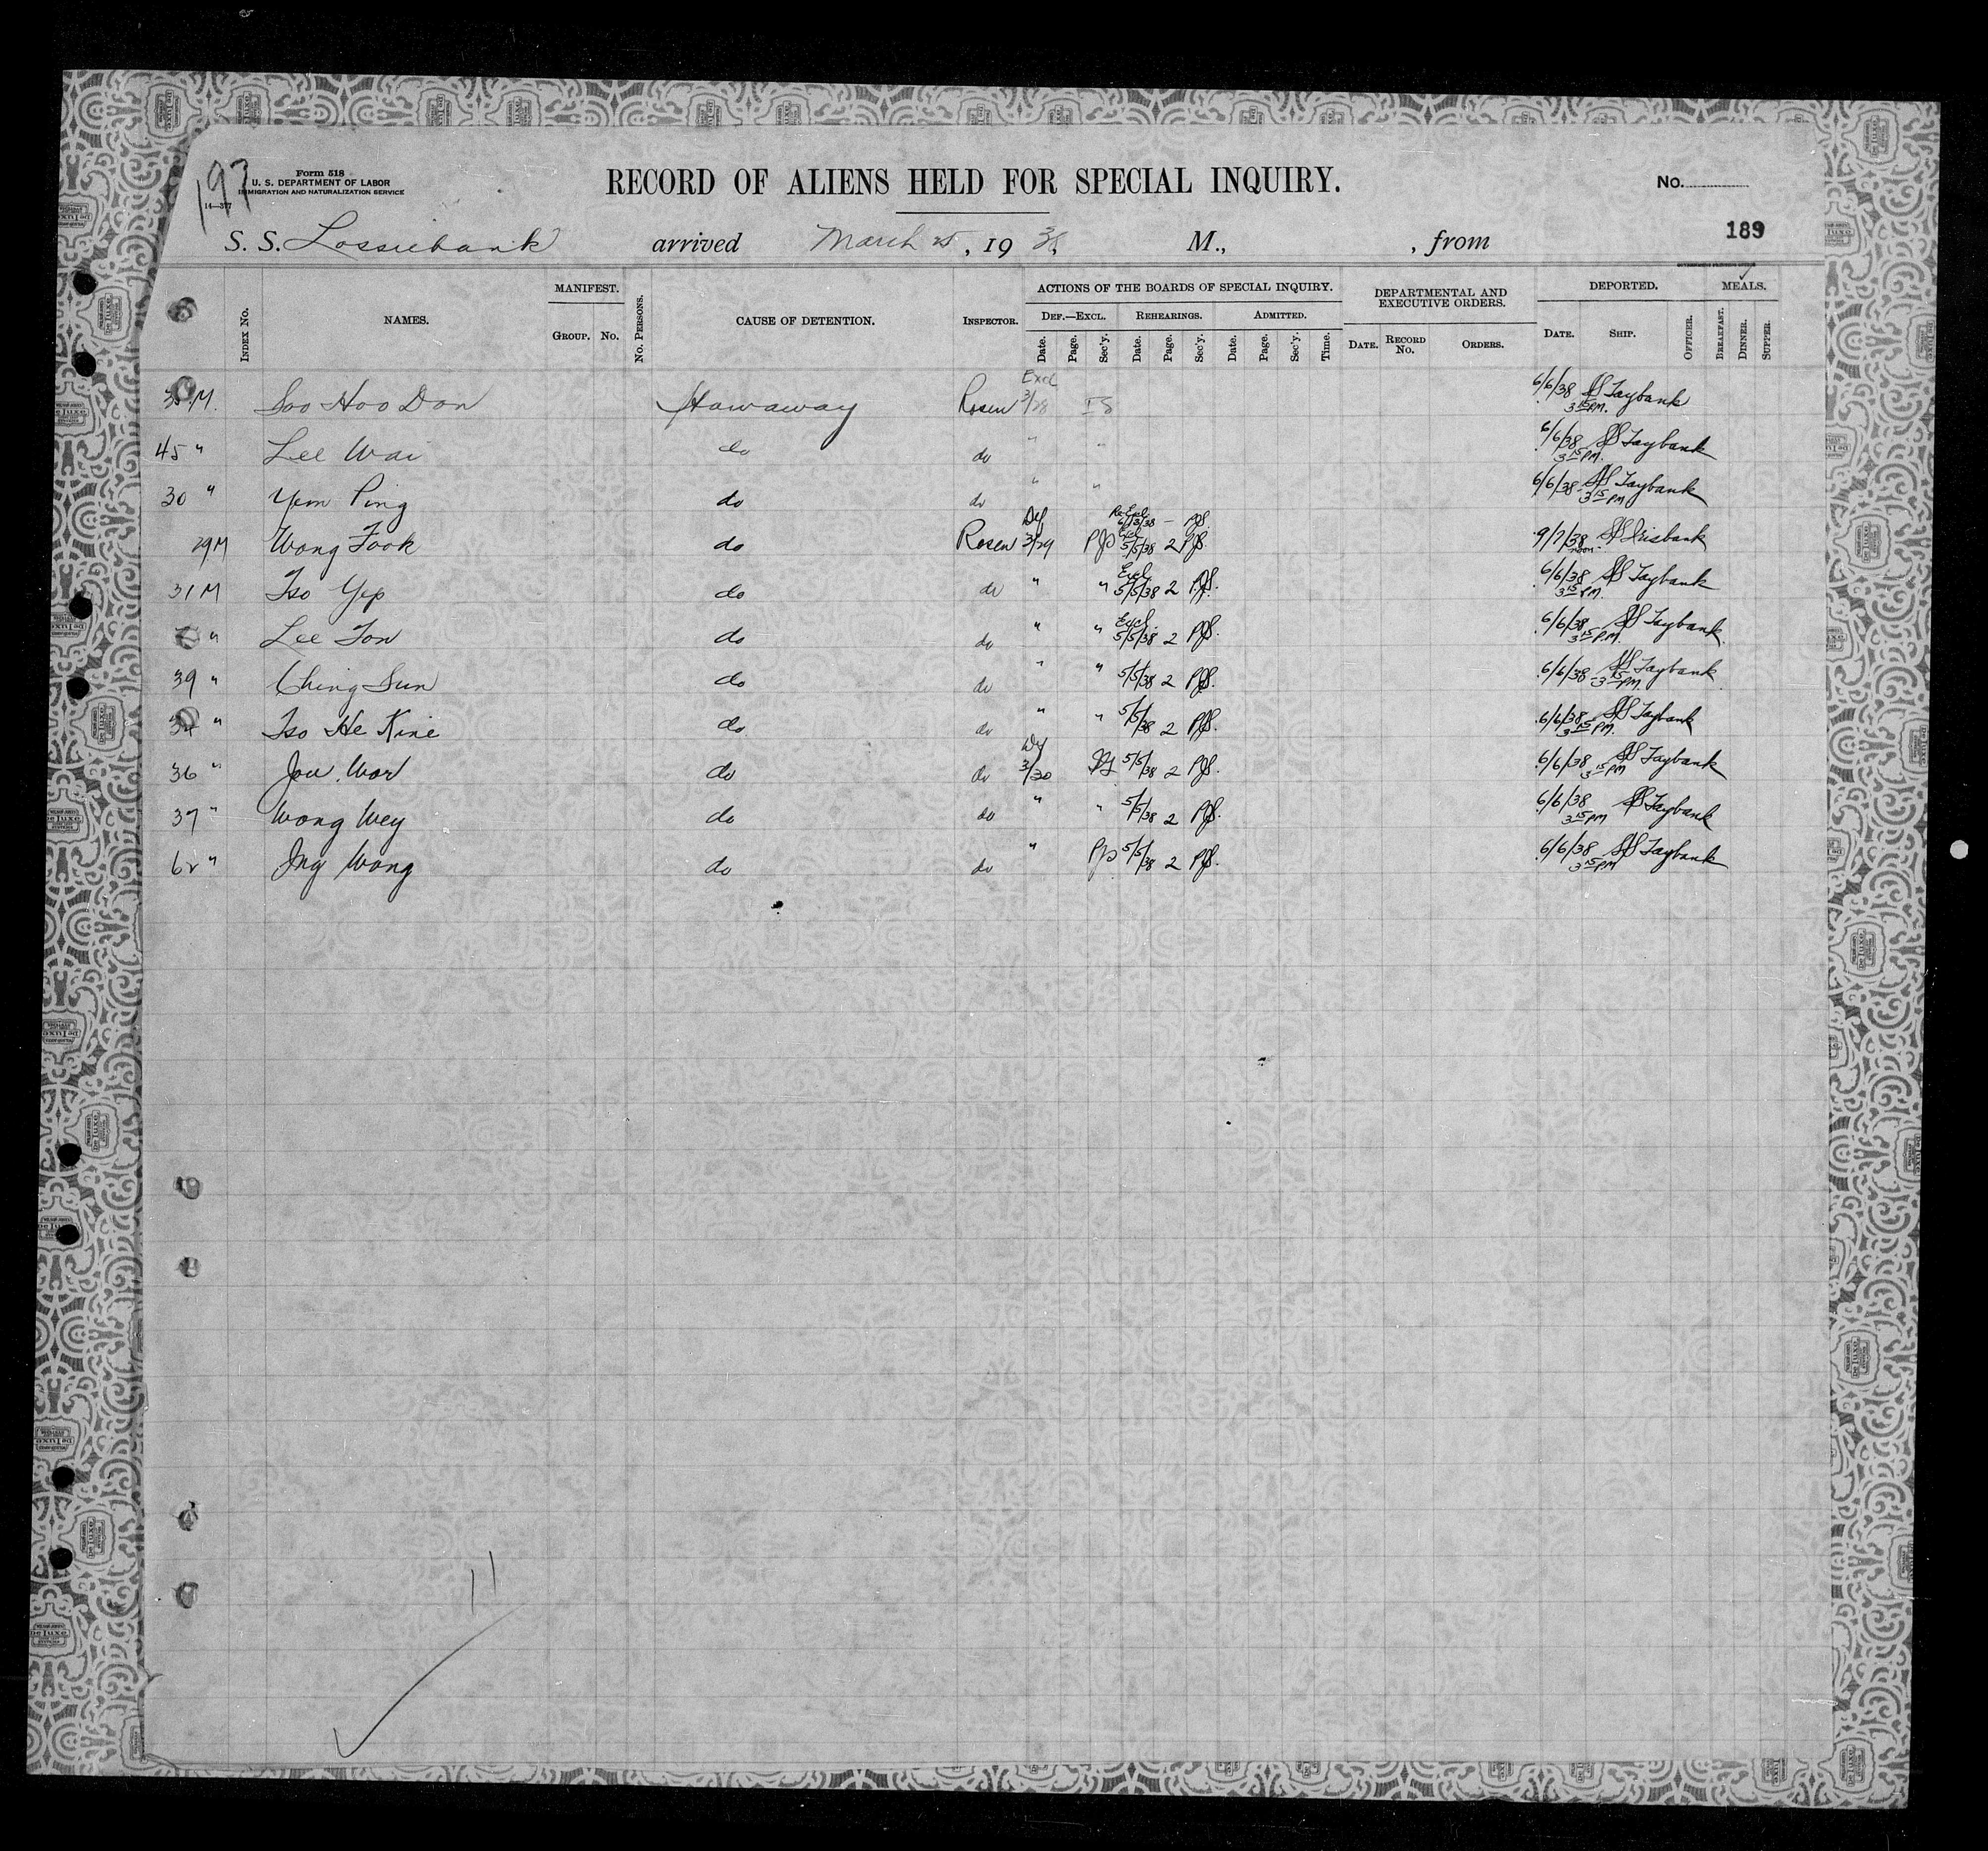 197
Form 518
U. S. DEPARTMENT OF LABOR
IMMIGRATION AND NATURALIZATION SERVICE
14—377
RECORD OF ALIENS HELD FOR SPECIAL INQUIRY.
No.
189
S. S. Lossiebank arrived March 25, 1938, M., , from
INDEX No. NAMES. MANIFEST. GROUP. No. No. PERSONS. CAUSE OF DETENTION. INSPECTOR. ACTIONS OF THE BOARDS OF SPECIAL INQUIRY. DEF.—EXCL. Date. Page. Sec'y. REHEARINGS. Date. Page. Sec'y. ADMITTED. Date. Page. Sec'y. Time. DEPARTMENTAL AND EXECUTIVE ORDERS. DATE. RECORD No. ORDERS. DEPORTED. DATE. SHIP. OFFICER. MEALS. BREAKFAST. DINNER. SUPPER.
M. Soo Hoo Don Stowaway Rosen Excl 3/28 IS 6/6/38 3 15 PM. SS Taybank
45 " Lee Wai do do " " 6/6/38 3 15 PM. SS Taybank
30 " Yem Ping do do " " 6/6/38 3 15 PM SS Taybank
29 M Wong Fook do Rosen Def 3/29 PJS Re-Excl 6/13/38 — PJS. Excl 5/5/38 2 PJS. 9/7/38 noon. SS Irisbank
31 M Tso Yep do do " " Excl 5/5/38 2 PJS. 6/6/38 3 15 PM. SS Taybank
" Lee Ton do do " " Excl. 5/5/38 2 PJS. 6/6/38 3 15 PM. SS Taybank.
39 " Ching Sun do do " " 5/5/38 2 PJS. 6/6/38 3 15 PM. SS Taybank
" Tso He Kine do do " " 5/5/38 2 PJS. 6/6/38 3 15 PM. SS Taybank
36 " Jow Wor do do Def 3/30 5/5/38 2 PJS. 6/6/38 3 15 PM SS Taybank
37 " Wong Wey do do " " 5/5/38 2 PJS. 6/6/38 3 15 PM SS Taybank
62 " Ing Wong do do " PJS 5/5/38 2 PJS. 6/6/38 3 15 PM SS Taybank
11